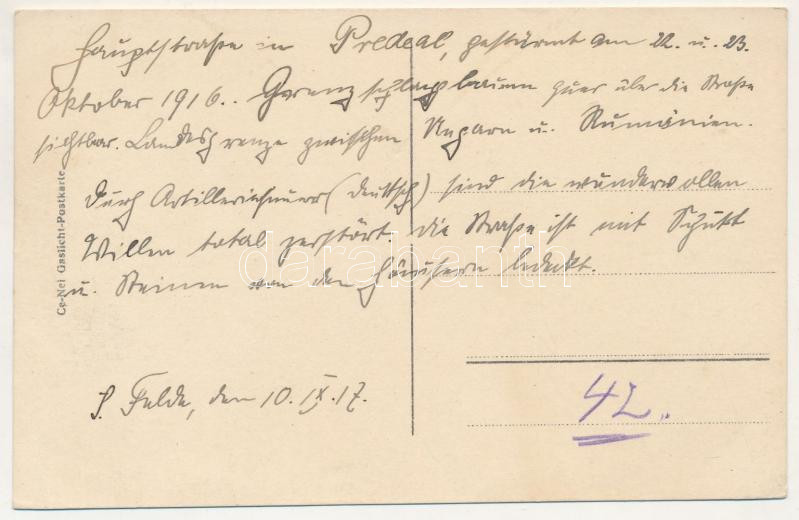 Hauptstraße in Predeal, gestürmt am 22. u. 23.
Oktober 1916. Grenzschlagbaum quer über die Straße
sichtbar. Landesgrenze zwischen Ungarn u. Rumänien.
Durch Artilleriefeuer (deutsch) sind die wundervollen
Villen total zerstört, die Straße ist mit Schutt
u. Steinen von den Häusern bedeckt.
Felde, den 10. IX. 17.
42
Ce-Nei Gaslicht-Postkarte
darabanth